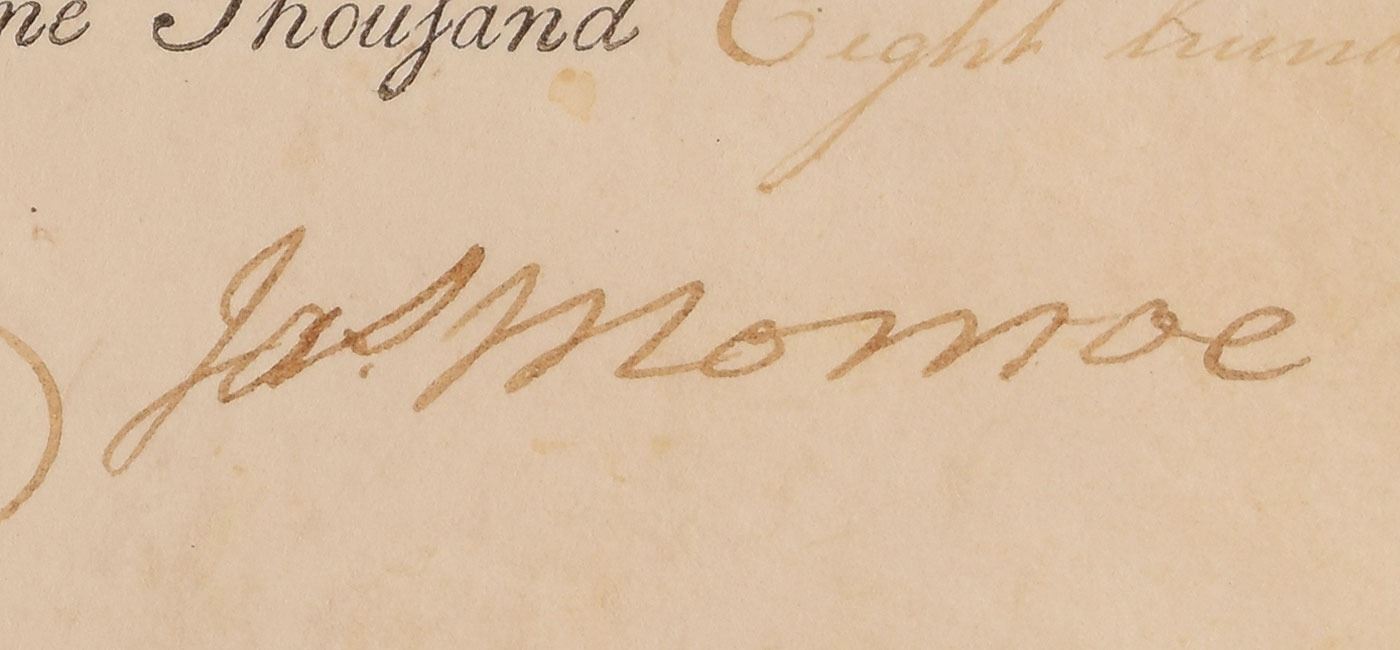 ne Thousand Eight hund
Jas Monroe